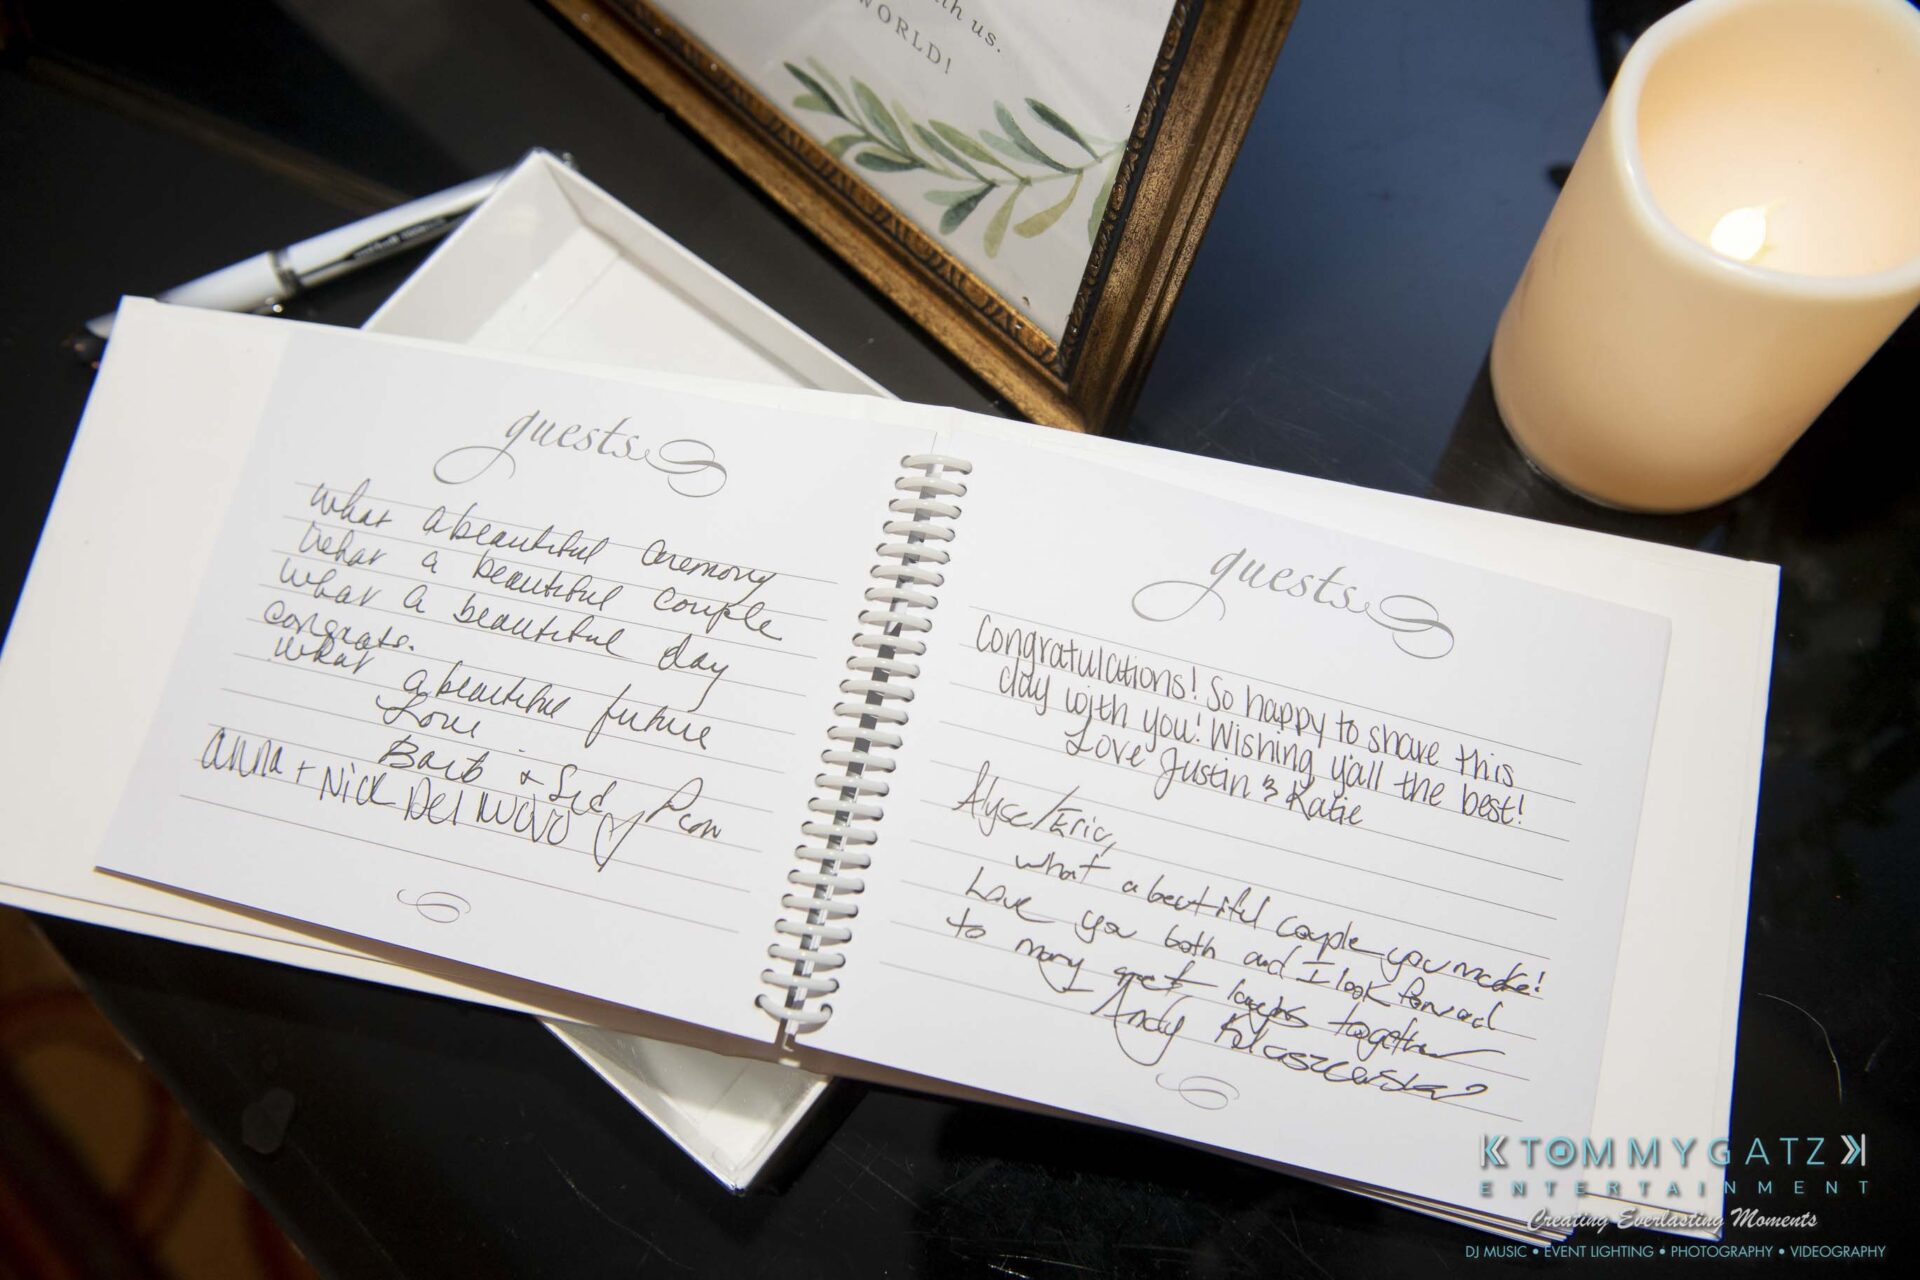 th us.
WORLD!
guests
What a beautiful ceremony
What a beautiful couple
What a beautiful day
congrats.
What a beautiful future
Love
Barb + Sid
Anna + Nick Del Nuovo
guests
Congratulations! So happy to share this
day with you! Wishing y'all the best!
Love Justin & Katie
Alyse/Eric,
what a beautiful couple you make!
Love you both and I look forward
to many great laughs together
Andy
TOMMY GATZ
ENTERTAINMENT
Creating Everlasting Moments
DJ MUSIC • EVENT LIGHTING • PHOTOGRAPHY • VIDEOGRAPHY